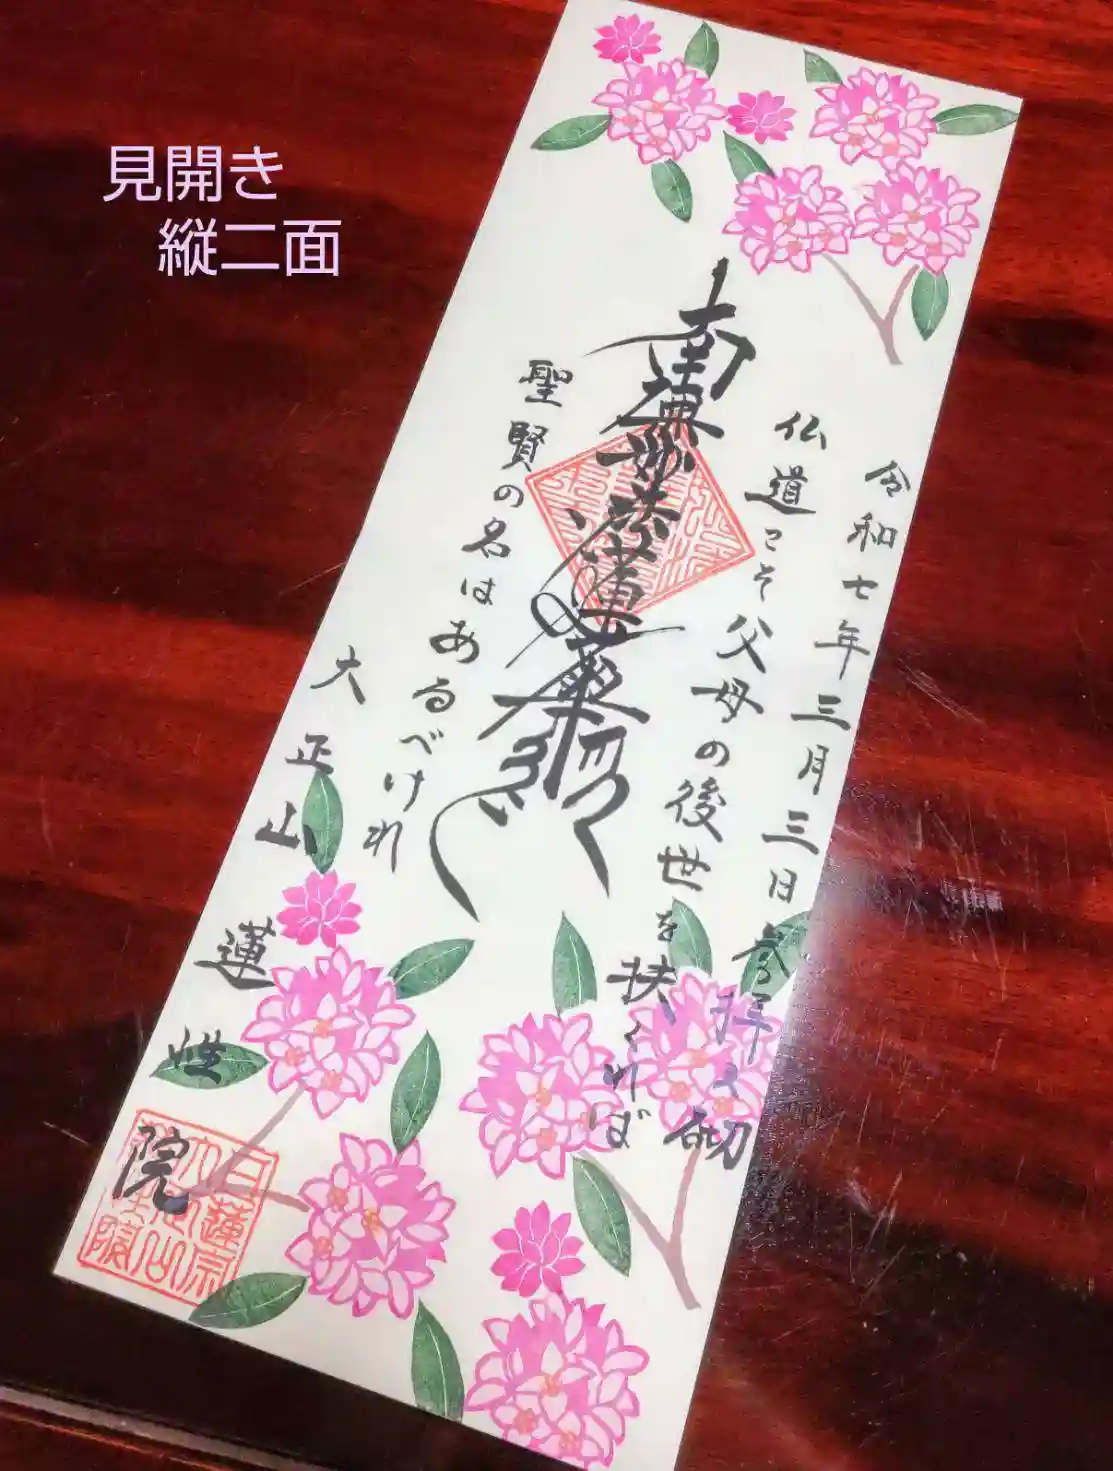 見開き
縦二面
令和七年三月三日参拝之砌
仏道こそ父母の後世を扶くれば
南無妙法蓮華経
聖賢の名はあるべけれ
大正山
蓮性院